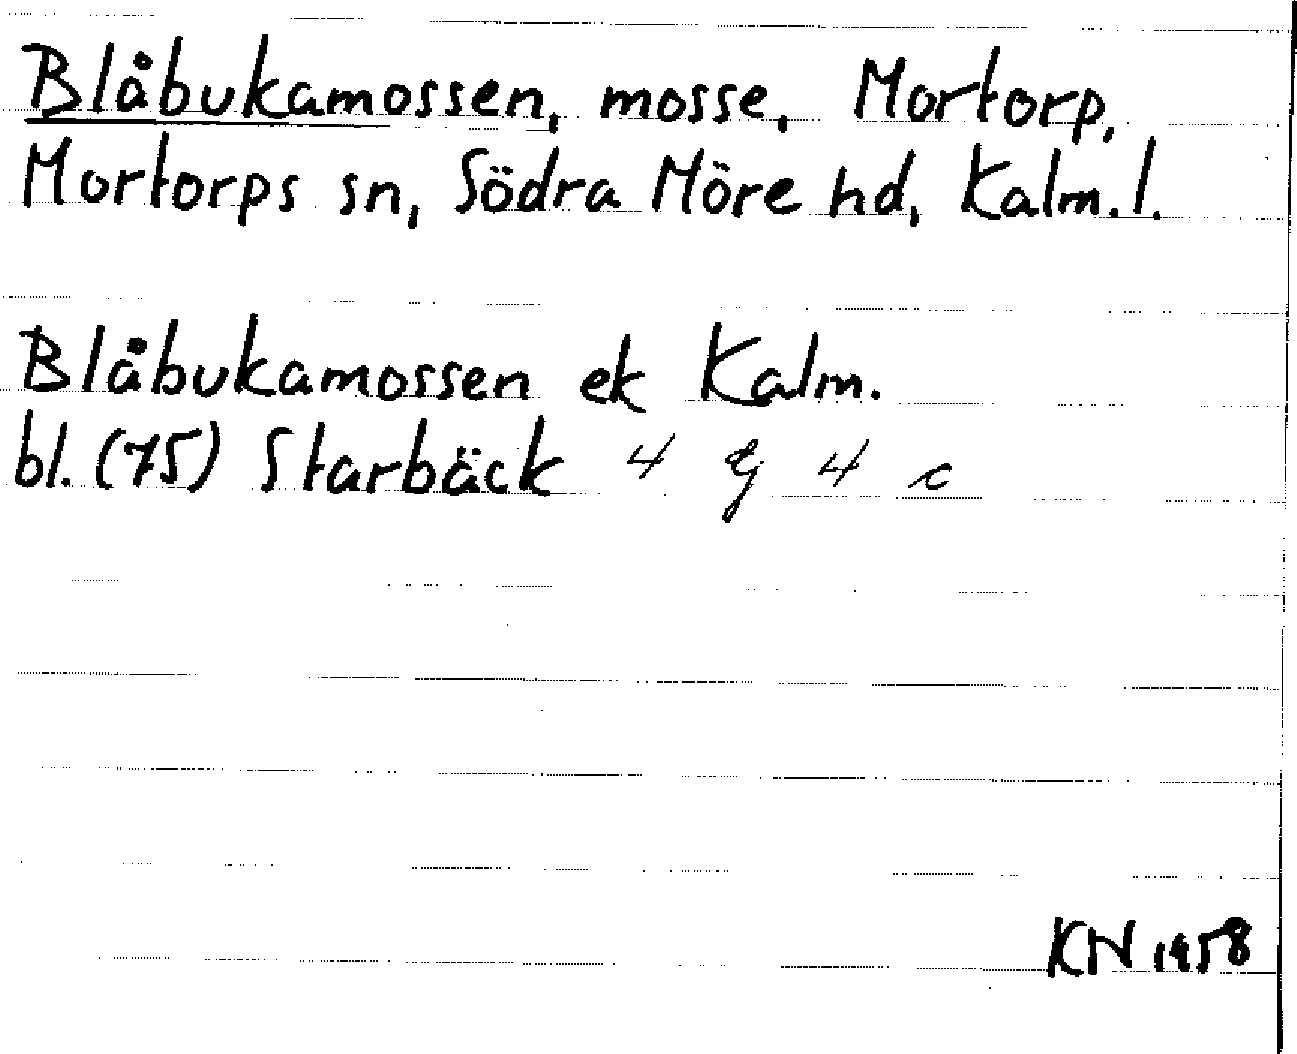 Blåbukamossen, mosse, Mortorp,
Mortorps sn, Södra Möre hd, Kalm. l.
Blåbukamossen ek Kalm.
bl. (75) Starbäck 4 G 4 c
KN 1958